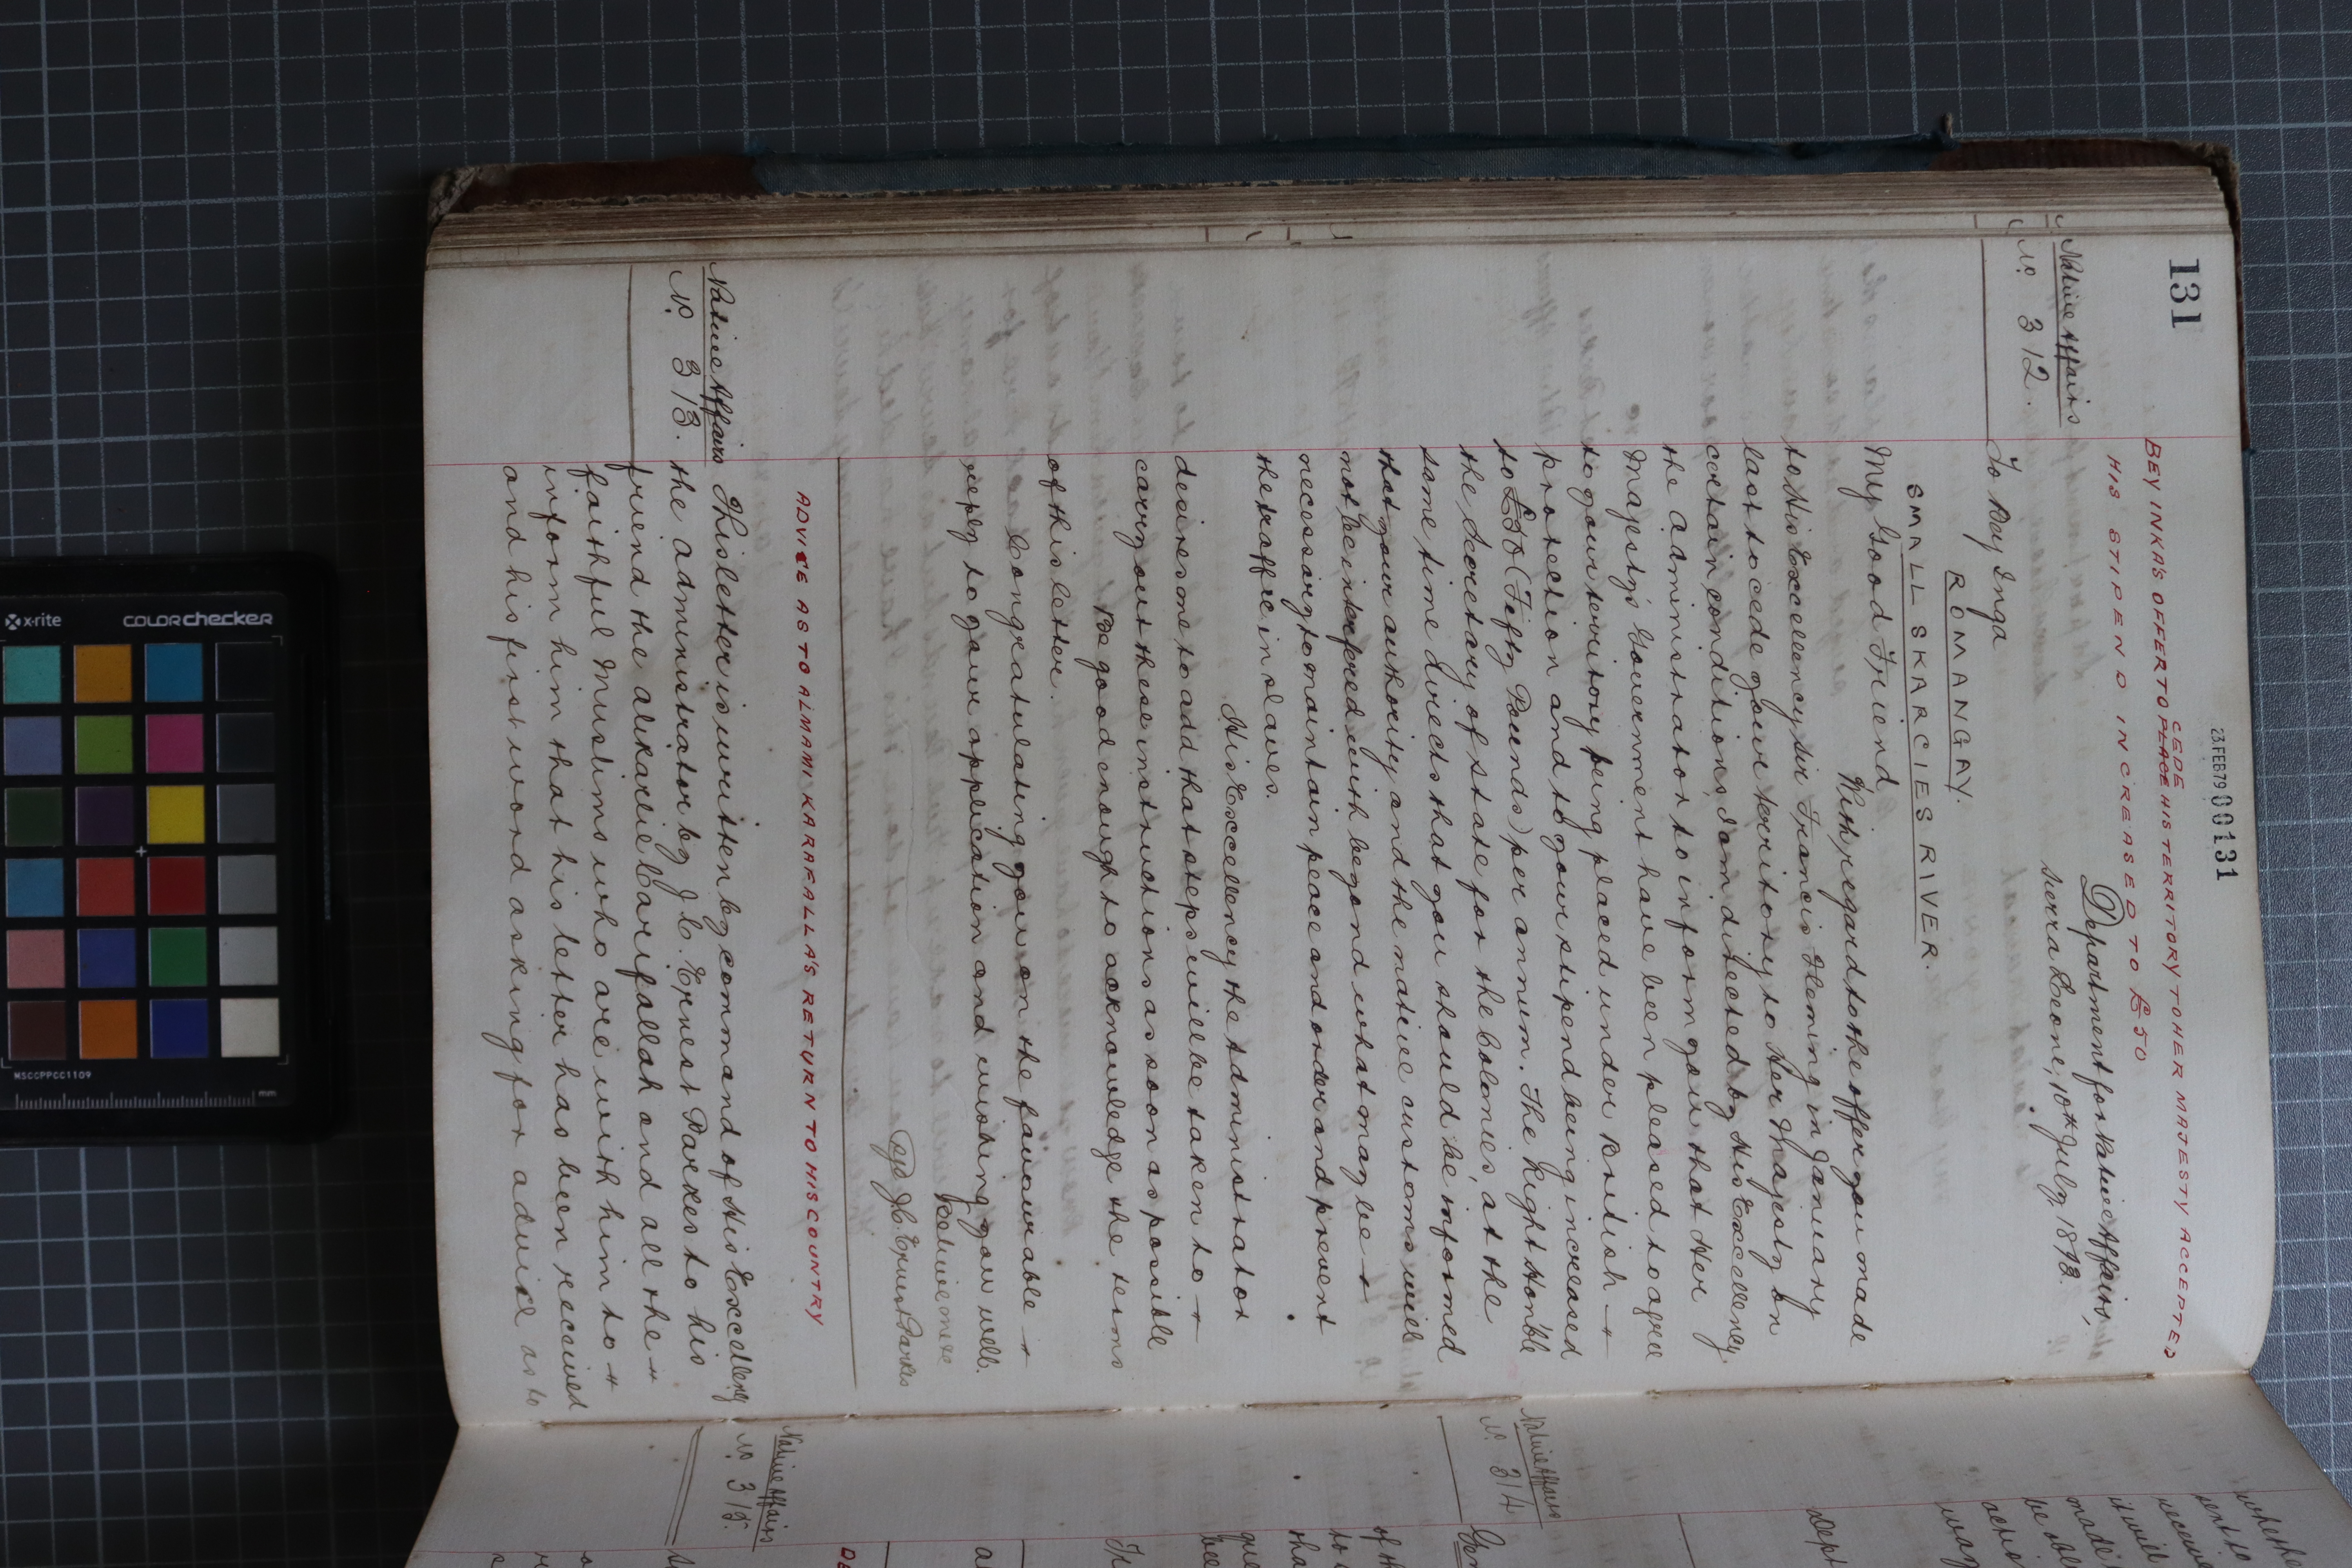 131
23 FEB 79 00131
BEY INKA'S OFFER TO PLACE CEDE HIS TERRITORY TO HER MAJESTY ACCEPTED
HIS STIPEND INCREASED TO £50
Native Affairs
No. 312.
Department for Native Affairs,
Sierra Leone, 10th July, 1893.
To Bey Inga
ROMANGAY.
SMALL SKARCIES RIVER.
My Good Friend
With regard to the offer you made
to His Excellency Sir Francis Fleming in January
last to cede your territory to Her Majesty on
certain conditions, I am directed by His Excellency
the Administrator to inform you that Her
Majesty's Government have been pleased to agree
to your territory being placed under British
protection and to your stipend being increased
to £50 (Fifty Pounds) per annum. The Right Honble
the Secretary of State for the Colonies, at the
same time directs that you should be informed
that your authority and the native customs will
not be interfered with beyond what may be
necessary to maintain peace and order and prevent
the traffic in slaves.
His Excellency the Administrator
desires me to add that steps will be taken to
carry out these instructions as soon as possible
Be good enough to acknowledge the terms
of this letter.
Congratulating you on the favourable
reply to your application and wishing you well.
Believe me &c
Sgd J.C. Ernest Parkes
ADVICE AS TO ALMAMI KARAFALLA'S RETURN TO HIS COUNTRY
Native Affairs
No. 313.
This letter is written by command of His Excellency
the Administrator by J.C. Ernest Parkes to his
friend the Alikarlie Carifallah and all the
faithful Muslims who are with him to
inform him that his letter has been received
and his first word asking for advice as to
Native Affairs
No. 314
Native Affairs
No. 315.